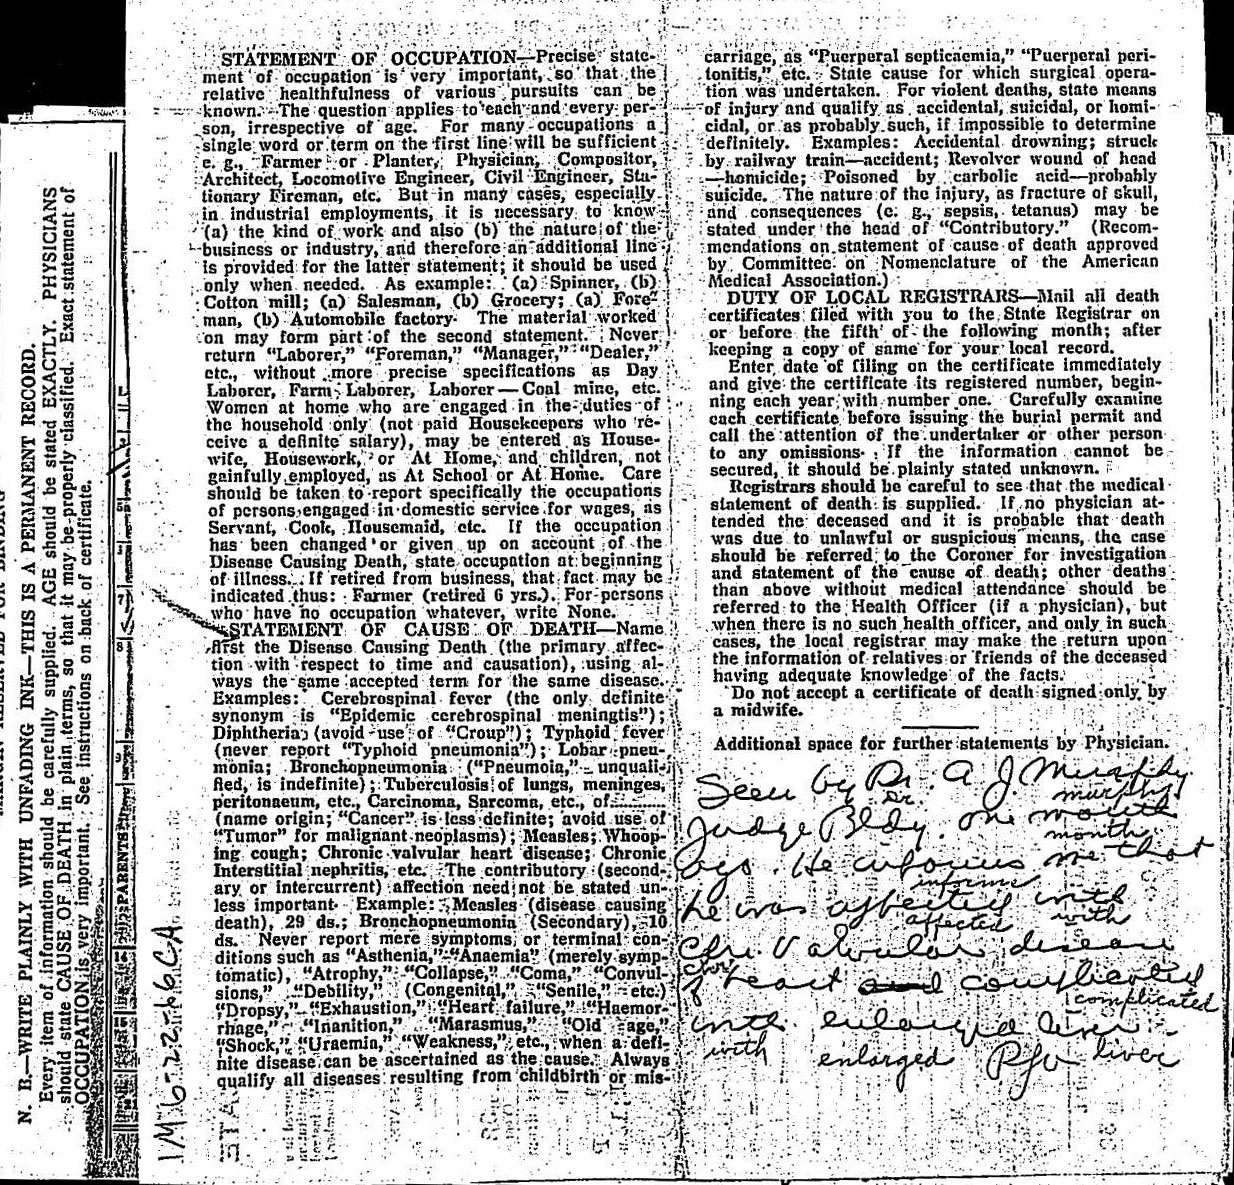 N. B.—WRITE PLAINLY WITH UNFADING INK—THIS IS A PERMANENT RECORD.
Every item of information should be carefully supplied. AGE should be stated EXACTLY. PHYSICIANS
should state CAUSE OF DEATH in plain terms, so that it may be properly classified. Exact statement of
OCCUPATION is very important. See instructions on back of certificate.
PARENTS
1M 6-22-16 C.A.
STATEMENT OF OCCUPATION—Precise state-
ment of occupation is very important, so that the
relative healthfulness of various pursuits can be
known. The question applies to each and every per-
son, irrespective of age. For many occupations a
single word or term on the first line will be sufficient
e. g., Farmer or Planter, Physician, Compositor,
Architect, Locomotive Engineer, Civil Engineer, Sta-
tionary Fireman, etc. But in many cases, especially
in industrial employments, it is necessary to know
(a) the kind of work and also (b) the nature of the
business or industry, and therefore an additional line
is provided for the latter statement; it should be used
only when needed. As example: (a) Spinner, (b)
Cotton mill; (a) Salesman, (b) Grocery; (a) Fore-
man, (b) Automobile factory. The material worked
on may form part of the second statement. Never
return "Laborer," "Foreman," "Manager," "Dealer,"
etc., without more precise specifications as Day
Laborer, Farm Laborer, Laborer—Coal mine, etc.
Women at home who are engaged in the duties of
the household only (not paid Housekeepers who re-
ceive a definite salary), may be entered as House-
wife, Housework, or At Home, and children, not
gainfully employed, as At School or At Home. Care
should be taken to report specifically the occupations
of persons engaged in domestic service for wages, as
Servant, Cook, Housemaid, etc. If the occupation
has been changed or given up on account of the
Disease Causing Death, state occupation at beginning
of illness. If retired from business, that fact may be
indicated thus: Farmer (retired 6 yrs.). For persons
who have no occupation whatever, write None.
STATEMENT OF CAUSE OF DEATH—Name
first the Disease Causing Death (the primary affec-
tion with respect to time and causation), using al-
ways the same accepted term for the same disease.
Examples: Cerebrospinal fever (the only definite
synonym is "Epidemic cerebrospinal meningtis");
Diphtheria (avoid use of "Croup"); Typhoid fever
(never report "Typhoid pneumonia"); Lobar pneu-
monia; Bronchopneumonia ("Pneumoia," unquali-
fied, is indefinite); Tuberculosis of lungs, meninges,
peritonaeum, etc., Carcinoma, Sarcoma, etc., of..........
(name origin; "Cancer" is less definite; avoid use of
"Tumor" for malignant neoplasms); Measles; Whoop-
ing cough; Chronic valvular heart disease; Chronic
Interstitial nephritis, etc. The contributory (second-
ary or intercurrent) affection need not be stated un-
less important. Example: Measles (disease causing
death), 29 ds.; Bronchopneumonia (Secondary), 10
ds. Never report mere symptoms or terminal con-
ditions such as "Asthenia," "Anaemia" (merely symp-
tomatic), "Atrophy," "Collapse," "Coma," "Convul-
sions," "Debility," (Congenital," "Senile," etc.)
"Dropsy," "Exhaustion," "Heart failure," "Haemor-
rhage," "Inanition," "Marasmus," "Old age,"
"Shock," "Uraemia," "Weakness," etc., when a defi-
nite disease can be ascertained as the cause. Always
qualify all diseases resulting from childbirth or mis-
carriage, as "Puerperal septicaemia," "Puerperal peri-
tonitis," etc. State cause for which surgical opera-
tion was undertaken. For violent deaths, state means
of injury and qualify as accidental, suicidal, or homi-
cidal, or as probably such, if impossible to determine
definitely. Examples: Accidental drowning; struck
by railway train—accident; Revolver wound of head
—homicide; Poisoned by carbolic acid—probably
suicide. The nature of the injury, as fracture of skull,
and consequences (e. g., sepsis, tetanus) may be
stated under the head of "Contributory." (Recom-
mendations on statement of cause of death approved
by Committee on Nomenclature of the American
Medical Association.)
DUTY OF LOCAL REGISTRARS—Mail all death
certificates filed with you to the State Registrar on
or before the fifth of the following month; after
keeping a copy of same for your local record.
Enter date of filing on the certificate immediately
and give the certificate its registered number, begin-
ning each year with number one. Carefully examine
each certificate before issuing the burial permit and
call the attention of the undertaker or other person
to any omissions. If the information cannot be
secured, it should be plainly stated unknown.
Registrars should be careful to see that the medical
statement of death is supplied. If no physician at-
tended the deceased and it is probable that death
was due to unlawful or suspicious means, the case
should be referred to the Coroner for investigation
and statement of the cause of death; other deaths
than above without medical attendance should be
referred to the Health Officer (if a physician), but
when there is no such health officer, and only in such
cases, the local registrar may make the return upon
the information of relatives or friends of the deceased
having adequate knowledge of the facts.
Do not accept a certificate of death signed only by
a midwife.
Additional space for further statements by Physician.
Seen by Dr. A J. Murphy
Dr. murphy
Judge Bldg. one month
month
ago. He informs me that
informs
he was affected with
affected with
Chr. Valvular disease
chr
of heart and complicated
complicated
with enlarged liver.
with enlarged liver